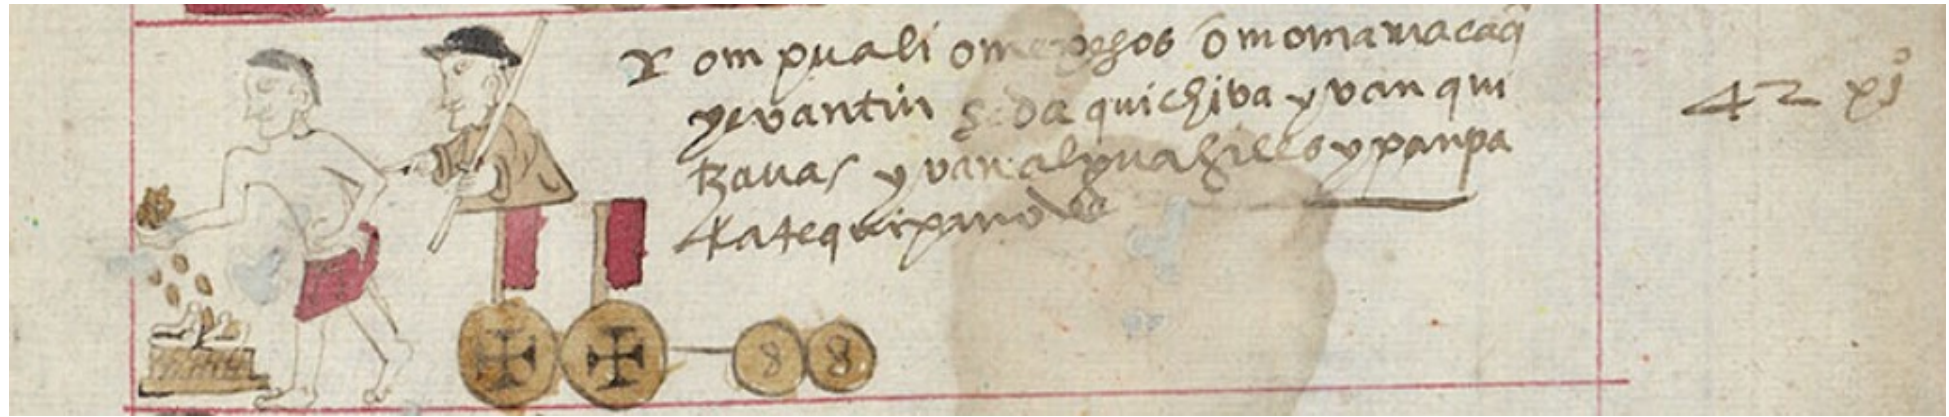 y ompuali omepesos omomamacaq̃
yevantin seda quichiva yvan qui
tzauas yvan alguaziles ypanpa
tatequipanode
42 p̃s
8 8